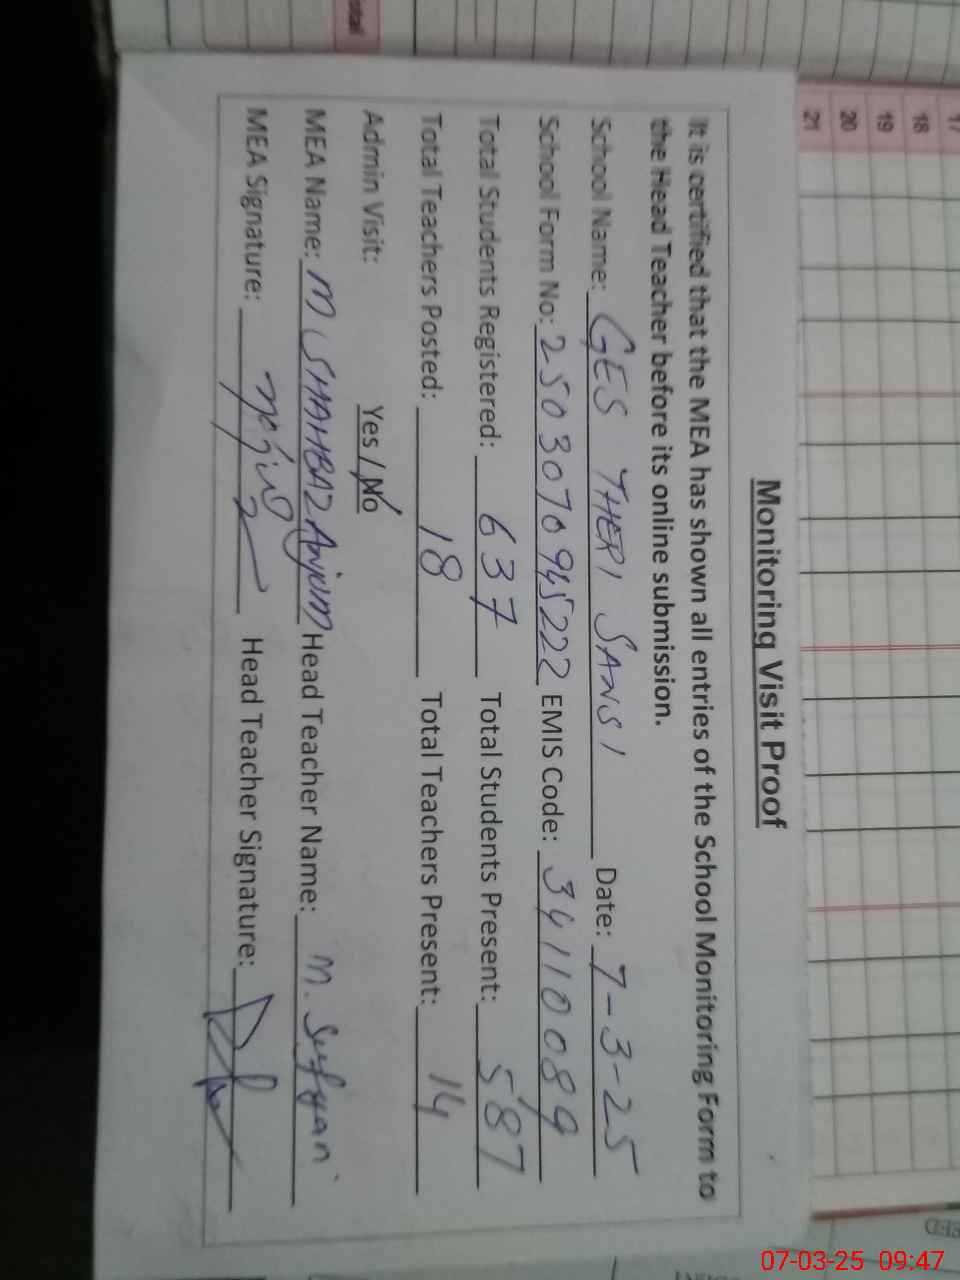 Monitoring Visit Proof
It is certified that the MEA has shown all entries of the School Monitoring Form to
the Head Teacher before its online submission.
School Name: GES THERI SANSI Date: 7-3-25
School Form No: 2503070945222 EMIS Code: 34110089
Total Students Registered: 637 Total Students Present: 587
Total Teachers Posted: 18 Total Teachers Present: 14
Admin Visit: Yes / No
MEA Name: M SHAHBAZ Anjum Head Teacher Name: M. Sufyan
MEA Signature: Head Teacher Signature:
17
18
19
20
21
07-03-25 09:47